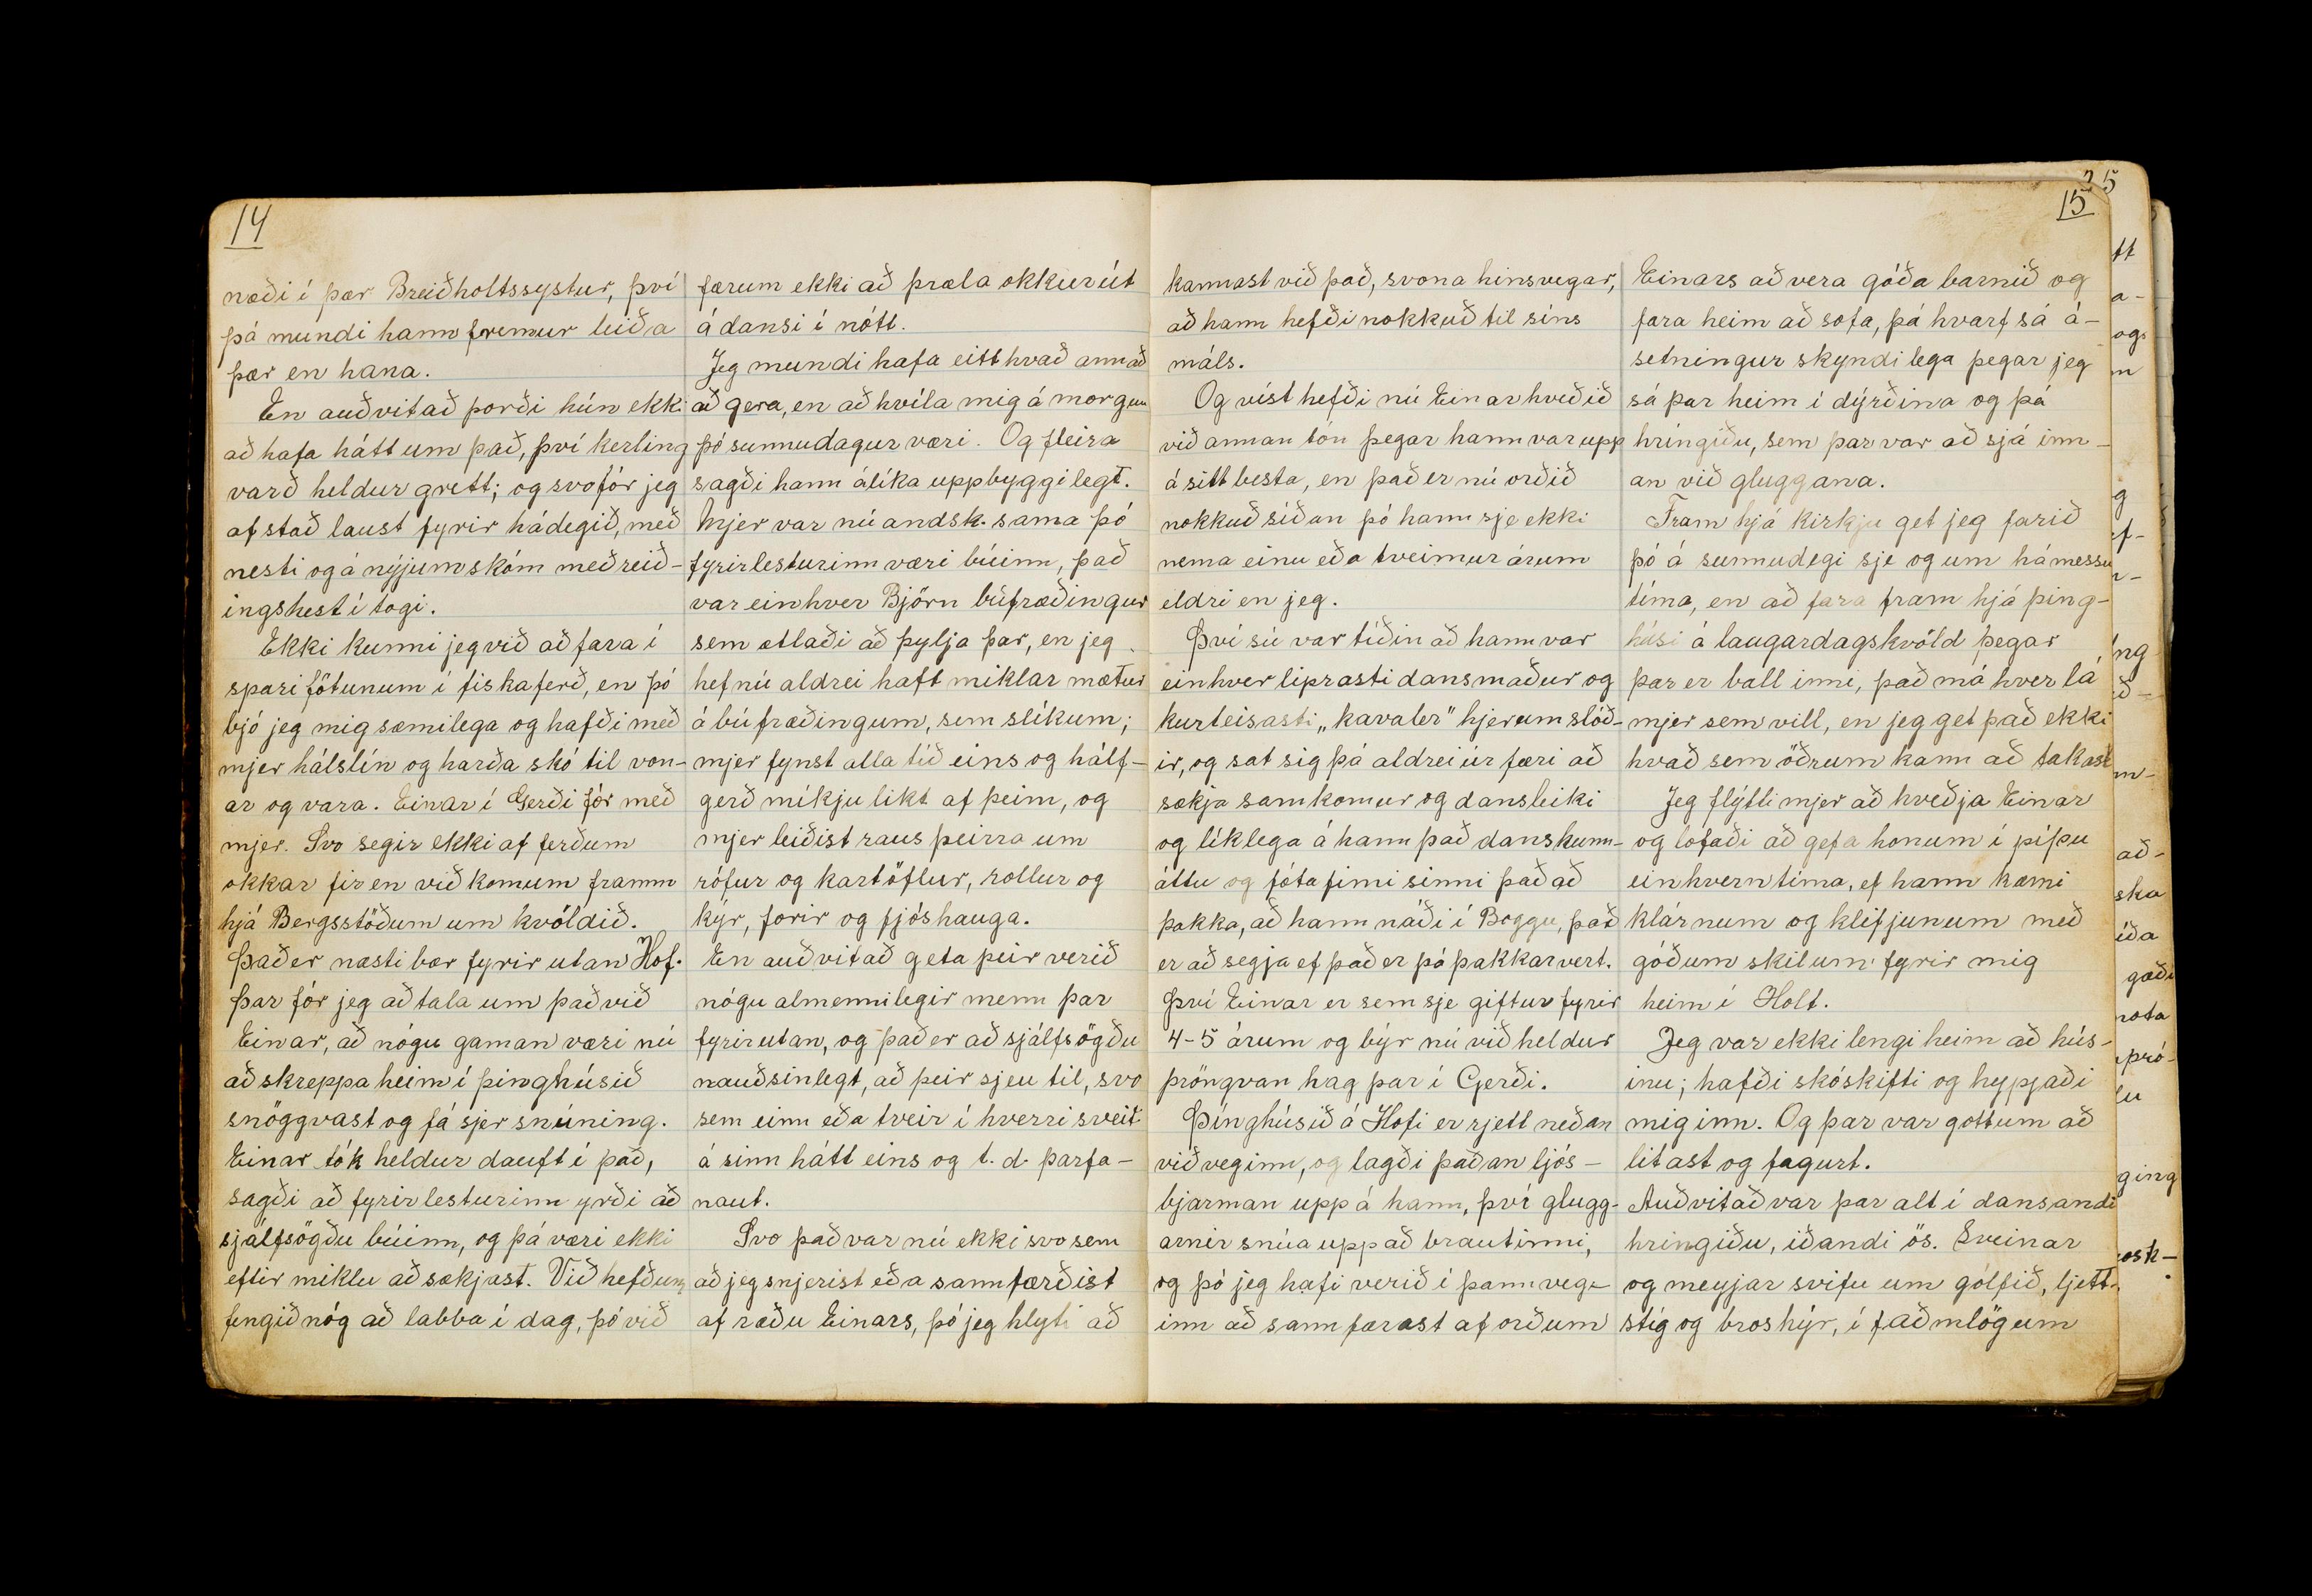 14
næði í þær Breiðholtssystur, því
þá mundi hann fremur leiða
þær en hana.
En auðvitað þorði hún ekki
að hafa hátt um það, því kerling
varð heldur grett; og svo fór jeg
af stað laust fyrir hádegið, með
nesti og á nýjum skóm með reið-
ingshest í togi.
Ekki kunni jeg við að fara í
spari fötunum í fiskaferð, en þó
bjó jeg mig sæmilega og hafði með
mjer hálslín og harða skó til von-
ar og vara. Einar í Gerði fór með
mjer. Svo segir ekki af ferðum
okkar fir en við komum framm
hjá Bergsstöðum um kvöldið.
Það er næsti bær fyrir utan Hof.
Þar fór jeg að tala um það við
Einar, að nógu gaman væri nú
að skreppa heim í þinghúsið
snöggvast og fá sjer snúning.
Einar tók heldur dauft í það,
sagði að fyrirlesturinn yrði að
sjálfsögðu búinn, og þá væri ekki
eftir miklu að sækjast. Við hefðum
fengið nóg að labba í dag, þó við
færum ekki að þræla okkur út
á dansi í nótt.
Jeg mundi hafa eitthvað annað
að gera, en að hvíla mig á morgun
þó sunnudagur væri. Og fleira
sagði hann álíka uppbyggilegt.
Mjer var nú andsk. sama þó
fyrirlesturinn væri búinn, það
var einhver Björn búfræðingur
sem ætlaði að þylja þar, en jeg
hef nú aldrei haft miklar mætur
á búfræðingum, sem slíkum;
mjer fynst alla tíð eins og hálf-
gerð mikju likt af þeim, og
mjer leiðist raus þeirra um
rófur og kartöflur, rollur og
kýr, forir og fjóshauga.
En auðvitað geta þeir verið
nógu almennilegir menn þar
fyrir utan, og það er að sjálfsögðu
nauðsinlegt, að þeir sjeu til, svo
sem einn eða tveir í hverri sveit
á sinn hátt eins og t. d. þarfa-
naut.
Svo það var nú ekki svo sem
að jeg snjerist eða sannfærðist
af ræðu Einars, þó jeg hlyti að
15
kannast við það, svona hinsvegar,
að hann hefði nokkuð til síns
máls.
Og víst hefði nú Einar hveðið
við annan tón þegar hann var upp
á sitt besta, en það er nú orðið
nokkuð síðan þó hann sje ekki
nema einu eða tveimur árum
eldri en jeg.
Því sú var tíðin að hann var
einhver liprasti dansmaður og
kurteisasti „kavaler" hjer um slóð-
ir, og sat sig þá aldrei úr færi að
sækja samkomur og dansleiki
og líklega á hann það danskunn-
áttu og fótafimi sinni það að
þakka, að hann náði í Boggu, það
er að segja ef það er þó þakkarvert.
Því Einar er sem sje giftur fyrir
4-5 árum og býr nú við heldur
þröngvan hag þar í Gerði.
Þinghúsið á Hofi er rjett neðan
við veginn, og lagði þaðan ljós-
bjarman upp á hann, því glugg-
arnir snúa upp að brautinni,
og þó jeg hafi verið í þann veg-
inn að sannfærast af orðum
Einars að vera góða barnið og
fara heim að sofa, þá hvarf sá á-
setningur skyndilega þegar jeg
sá þar heim í dýrðina og þá
hringiðu, sem þar var að sjá inn-
an við gluggana.
Fram hjá kirkju get jeg farið
þó á sunnudegi sje og um hámessu
tíma, en að fara fram hjá þing-
húsi á laugardagskvöld þegar
þar er ball inni, það má hver lá
mjer sem vill, en jeg get það ekki
hvað sem öðrum kann að takast
Jeg flýtti mjer að hveðja Einar
og lofaði að gefa honum í pípu
einhvern tíma, ef hann kæmi
klárnum og klifjunum með
góðum skilum fyrir mig
heim í Holt.
Jeg var ekki lengi heim að hús-
inu; hafði skóskifti og hyppjaði
mig inn. Og þar var gott um að
litast og fagurt.
Auðvitað var þar alt í dansandi
hringiðu, iðandi ös. Sveinar
og meyjar svifu um gólfið, ljett-
stíg og broshýr, í faðmlögum